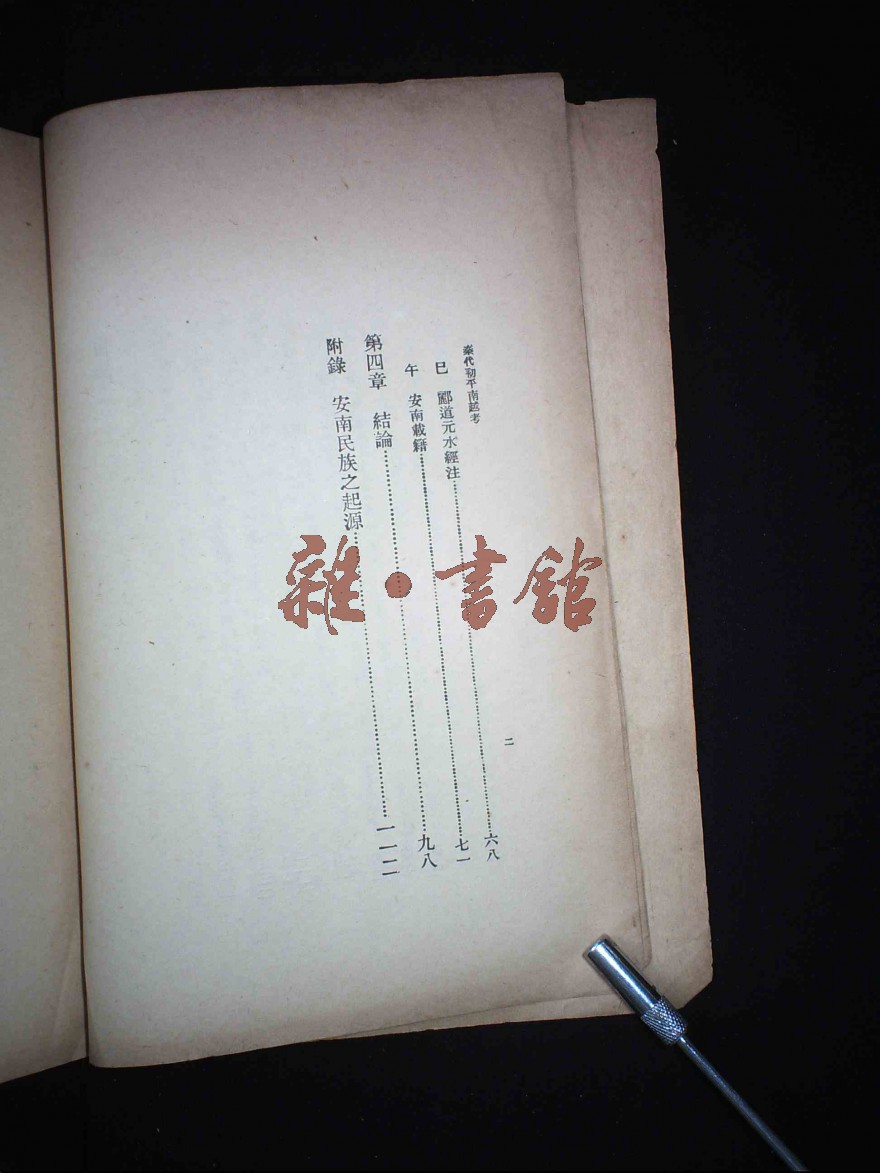 秦代初平南越考
二
巳 酈道元水經注……六八
午 安南載籍……七一
第四章 結論……九八
附錄 安南民族之起源……一一二
雜·書館